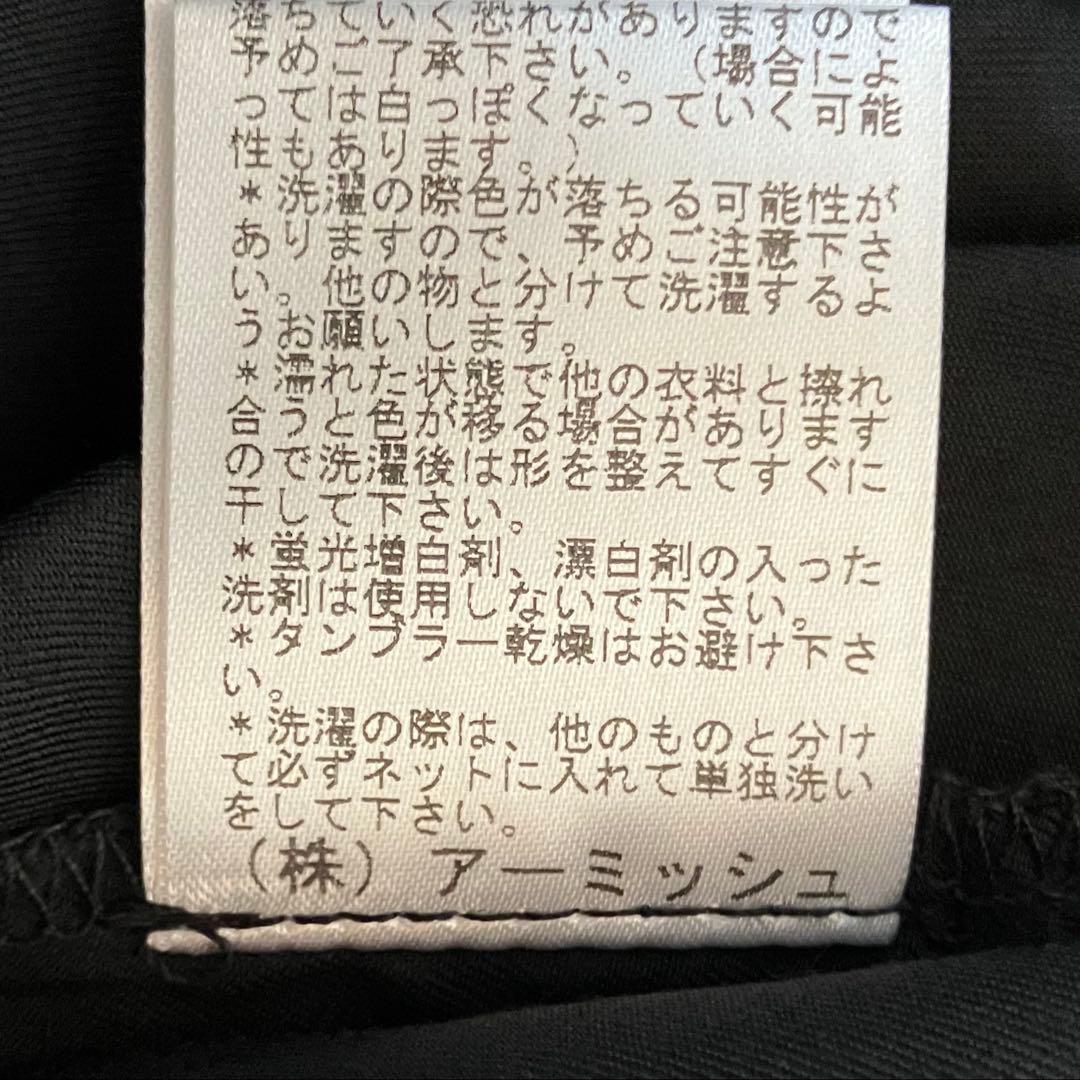 落ちていく恐れがありますので
予めご了承下さい。(場合によ
っては白っぽくなっていく可能
性もあります。)
*洗濯の際色が落ちる可能性が
ありますので、予めご注意下さ
い。他の物と分けて洗濯するよ
うお願いします。
*濡れた状態で他の衣料と擦れ
合うと色が移る場合があります
ので洗濯後は形を整えてすぐに
干して下さい。
*蛍光増白剤、漂白剤の入った
洗剤は使用しないで下さい。
*タンブラー乾燥はお避け下さ
い。
*洗濯の際は、他のものと分け
て必ずネットに入れて単独洗い
をして下さい。
(株)アーミッシュ